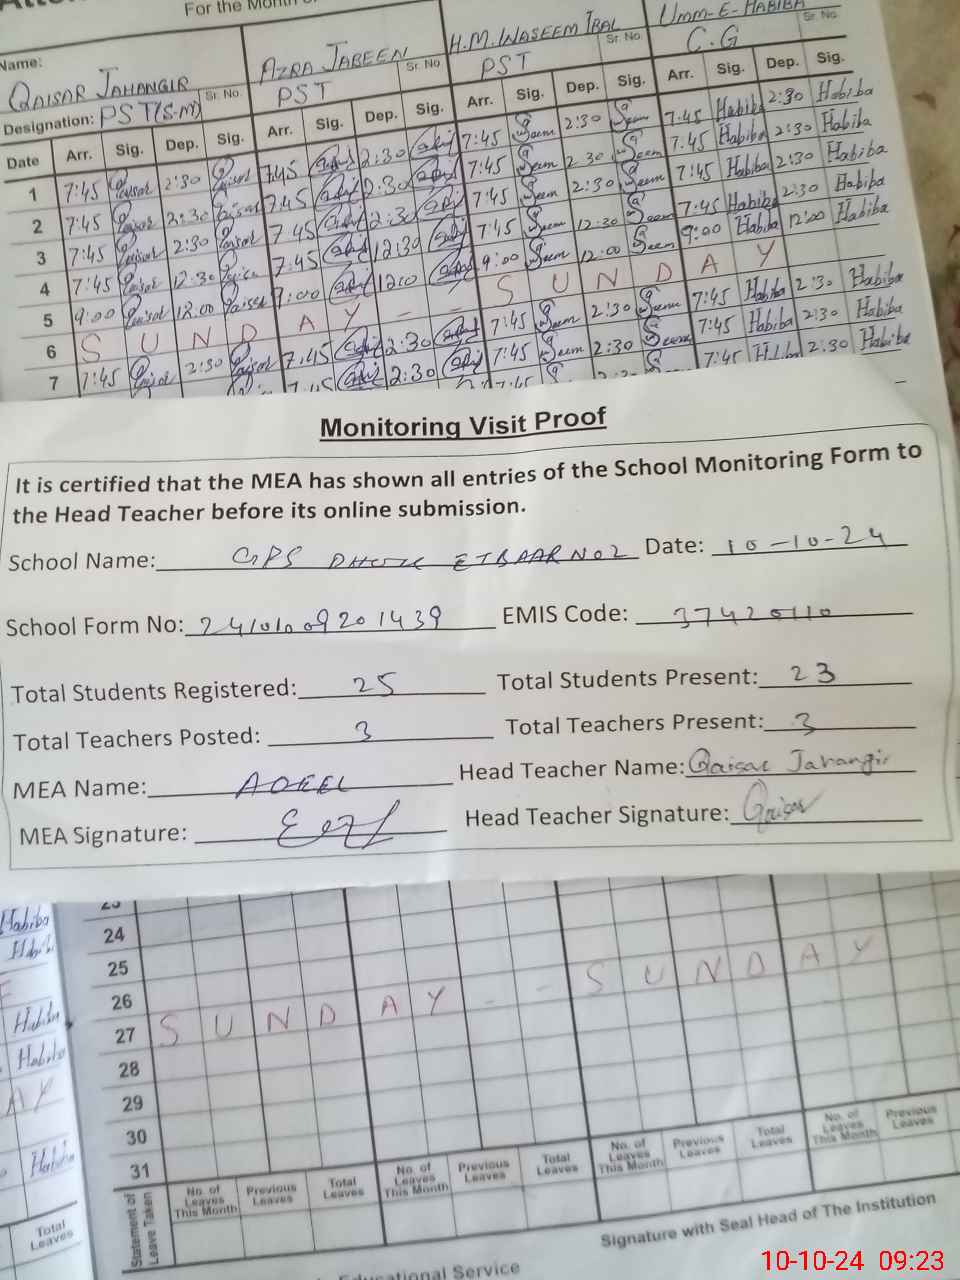 For the Month
Name:
QAISAR JAHANGIR
AZRA JABEEN
H.M. WASEEM IBAL
UMM-E-HABIBA
Sr. No. Sr. No. Sr. No. Sr. No.
Designation: PST(S.M) PST PST C.G
Date Arr. Sig. Dep. Sig. Arr. Sig. Dep. Sig. Arr. Sig. Dep. Sig. Arr. Sig. Dep. Sig.
1 7:45 Qaisar 2:30 Qaisar 7:45 2:30 7:45 Seem 2:30 Seem 7:45 Habiba 2:30 Habiba
2 7:45 Qaisar 2:30 Qaisar 7:45 2:30 7:45 Seem 2 30 Seem 7:45 Habiba 2:30 Habiba
3 7:45 Qaisar 2:30 Qaisar 7:45 2:30 7:45 Seem 2:30 Seem 7:45 Habiba 2:30 Habiba
4 7:45 Qaisar 12:30 7:45 12:30 7:45 Seem 12:30 Seem 7:45 Habiba 2:30 Habiba
5 9:00 Qaisar 12:00 Qaisar 9:00 1200 9:00 Seem 12:00 Seem 9:00 Habiba 12:00 Habiba
6 S U N D A Y - - S U N D A Y
7 7:45 Qaisar 2:30 Qaisar 7:45 2:30 7:45 Seem 2:30 Seem 7:45 Habiba 2:30 Habiba
2:30 7:45 Seem 2:30 Seem 7:45 Habiba 2:30 Habiba
7:45 2:30 Habiba
Monitoring Visit Proof
It is certified that the MEA has shown all entries of the School Monitoring Form to
the Head Teacher before its online submission.
School Name: GPS DHOKE ETBAAR NO 2 Date: 10-10-24
School Form No: 24101009201439 EMIS Code: 37420110
Total Students Registered: 25 Total Students Present: 23
Total Teachers Posted: 3 Total Teachers Present: 3
MEA Name: ADEEL Head Teacher Name: Qaisar Jahangir
MEA Signature: Head Teacher Signature: Qaisar
Habiba
Habiba
Habiba
Habiba
AY
Habiba
Total
Leaves
24
25
26
27 S U N D A Y - - S U N D A Y
28
29
30
31
Statement of
Leave Taken
No. of
Leaves
This Month
Previous
Leaves
Total
Leaves
No. of
Leaves
This Month
Previous
Leaves
Total
Leaves
No. of
Leaves
This Month
Previous
Leaves
Total
Leaves
No. of
Leaves
This Month
Previous
Leaves
Signature with Seal Head of The Institution
Educational Service
10-10-24 09:23